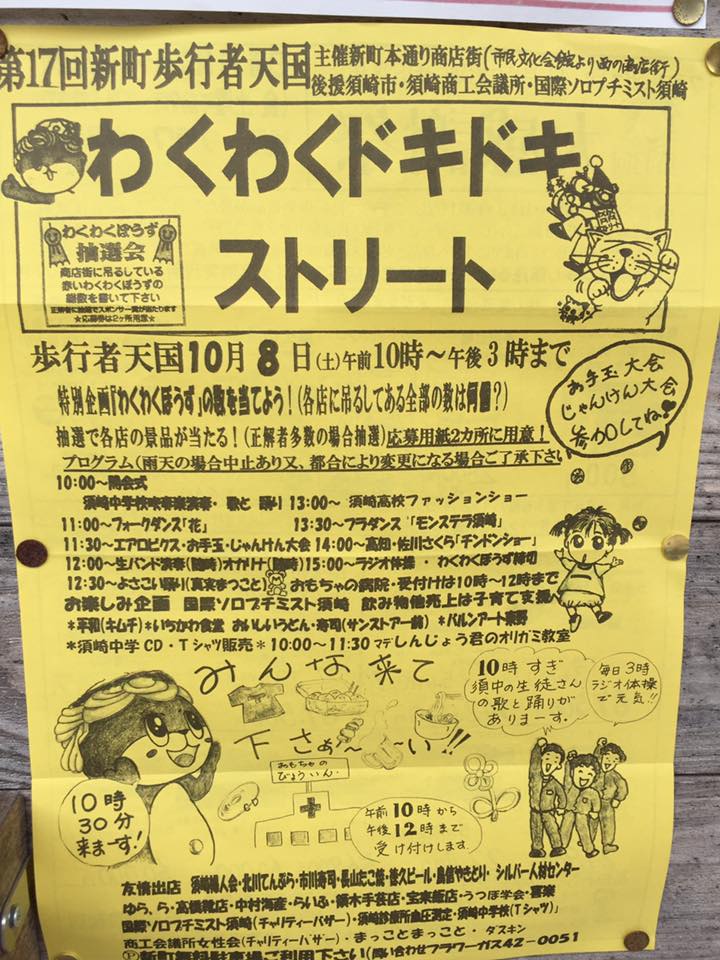 第17回新町歩行者天国
主催新町本通り商店街(市民文化会館より西の商店街)
後援須崎市・須崎商工会議所・国際ソロプチミスト須崎
わくわくドキドキ
ストリート
わくわくぼうず
抽選会
商店街に吊るしている
赤いわくわくぼうずの
総数を書いて下さい
正解者に抽選でスポンサー賞が当たります
☆応募券は2ヶ所用意☆
歩行者天国10月8日(土)午前10時～午後3時まで
特別企画『わくわくぼうず』の数を当てよう!(各店に吊るしてある全部の数は何個?)
抽選で各店の景品が当たる!(正解者多数の場合抽選)応募用紙2カ所に用意!
プログラム(雨天の場合中止あり又、都合により変更になる場合ご了承下さい
お手玉大会
じゃんけん大会
参加してね!!
10:00～開会式
須崎中学校吹奏楽演奏・歌と踊り 13:00～ 須崎高校ファッションショー
11:00～フォークダンス「花」 13:30～フラダンス「モンステラ須崎」
11:30～エアロビクス・お手玉・じゃんけん大会 14:00～高知・佐川さくら「チンドンショー」
12:00～生バンド演奏(臨時)オカリナ(臨時)15:00～ラジオ体操・わくわくぼうず締切
12:30～よさこい踊り(真実まつこと) おもちゃの病院・受付けは10時～12時まで
お楽しみ企画 国際ソロプチミスト須崎 飲み物他売上は子育て支援へ
*平和(キムチ)*いちかわ食堂 おいしいうどん・寿司(サンストアー前) *バルンアート東野
*須崎中学CD・Tシャツ販売*10:00～11:30マデしんじょう君のオリガミ教室
みんな来て
下さぁ～～い!!
10時すぎ
須中の生徒さん
の歌と踊りが
ありまーす。
毎日3時
ラジオ体操
で元気!!
おもちゃの
びょういん
10時
30分
来まーす!
午前10時から
午後12時まで
受け付けします。
友情出店 須崎婦人会・北川てんぷら・市川寿司・長山たこ焼・修久ビール・鳥信やきとり・シルバー人材センター
ゆら、ら・高橋靴店・中村海産・らいふ・鏑木手芸店・宝来飯店・うつぼ学会・喜楽
国際ソロプチミスト須崎(チャリティーバザー)・須崎診療所血圧測定・須崎中学校(Tシャツ)
商工会議所女性会(チャリティーバザー)・まっことまっこと・ダスキン
Ⓟ新町無料駐車場ご利用下さい(問い合わせフラワーガス42-0051